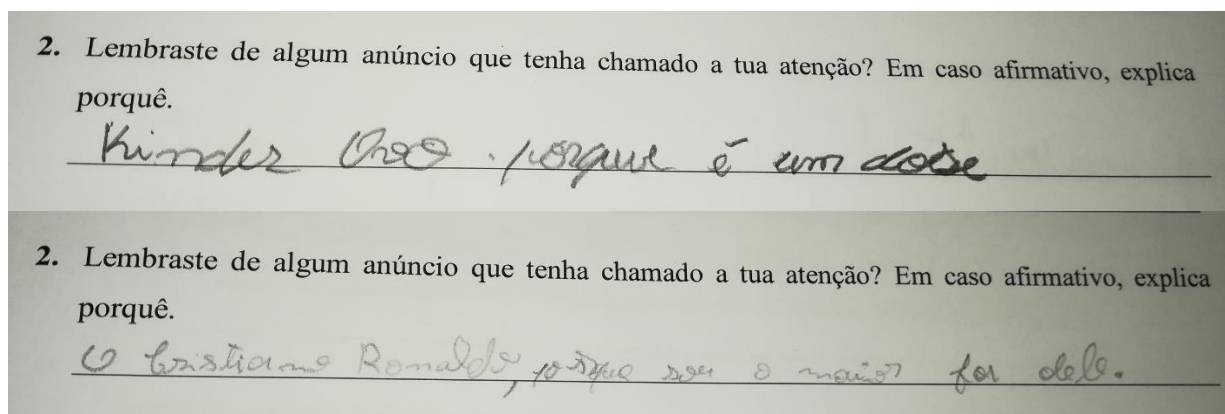 2. Lembraste de algum anúncio que tenha chamado a tua atenção? Em caso afirmativo, explica
porquê.
Kinder Ovo . porque é um dose
2. Lembraste de algum anúncio que tenha chamado a tua atenção? Em caso afirmativo, explica
porquê.
O Cristiano Ronaldo, porque sou o maior fa dele.